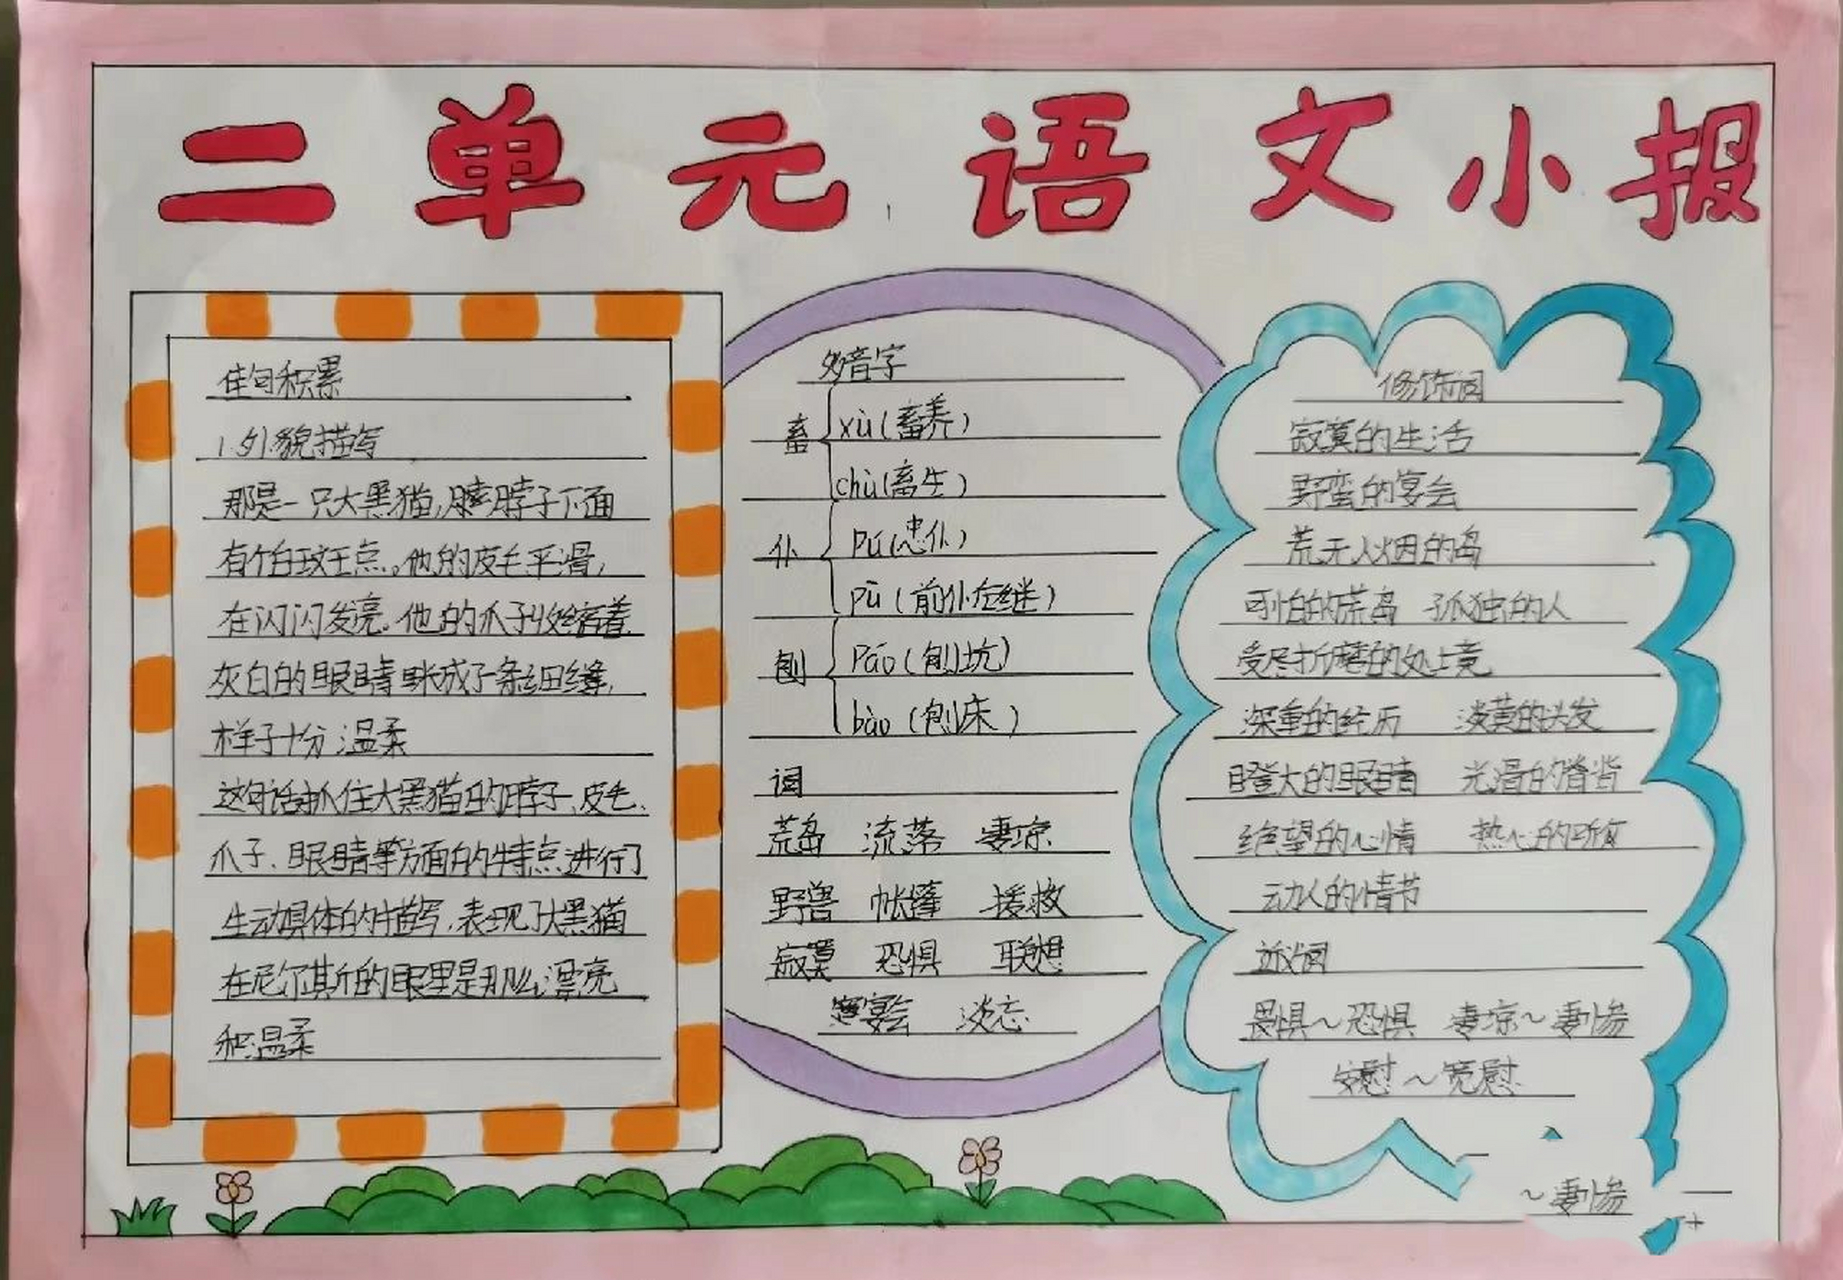 二单元语文小报
佳句积累
1.外貌描写
那是一只大黑猫,脖子下面
有个白斑点。他的皮毛平滑,
在闪闪发亮。他的爪子收缩着,
灰白的眼睛眯成了条细缝,
样子十分温柔
这句话抓住大黑猫的脖子、皮毛、
爪子、眼睛等方面的特点进行了
生动具体的描写,表现了大黑猫
在尼尔斯的眼里是那么漂亮
和温柔
多音字
畜 xù(畜养)
chù(畜生)
仆 pú(忠仆)
pū(前仆后继)
刨 páo(刨坑)
bào(刨床)
词
荒岛 流落 凄凉
野兽 帐篷 援救
寂寞 恐惧 联想
宴会 淡忘
修饰词
寂寞的生活
野蛮的宴会
荒无人烟的岛
可怕的荒岛 孤独的人
受尽折磨的处境
深重的经历 淡黄的头发
瞪大的眼睛 光滑的脊背
绝望的心情 热心的
动人的情节
近义词
畏惧~恐惧 凄凉~凄惨
安慰~宽慰
~凄惨